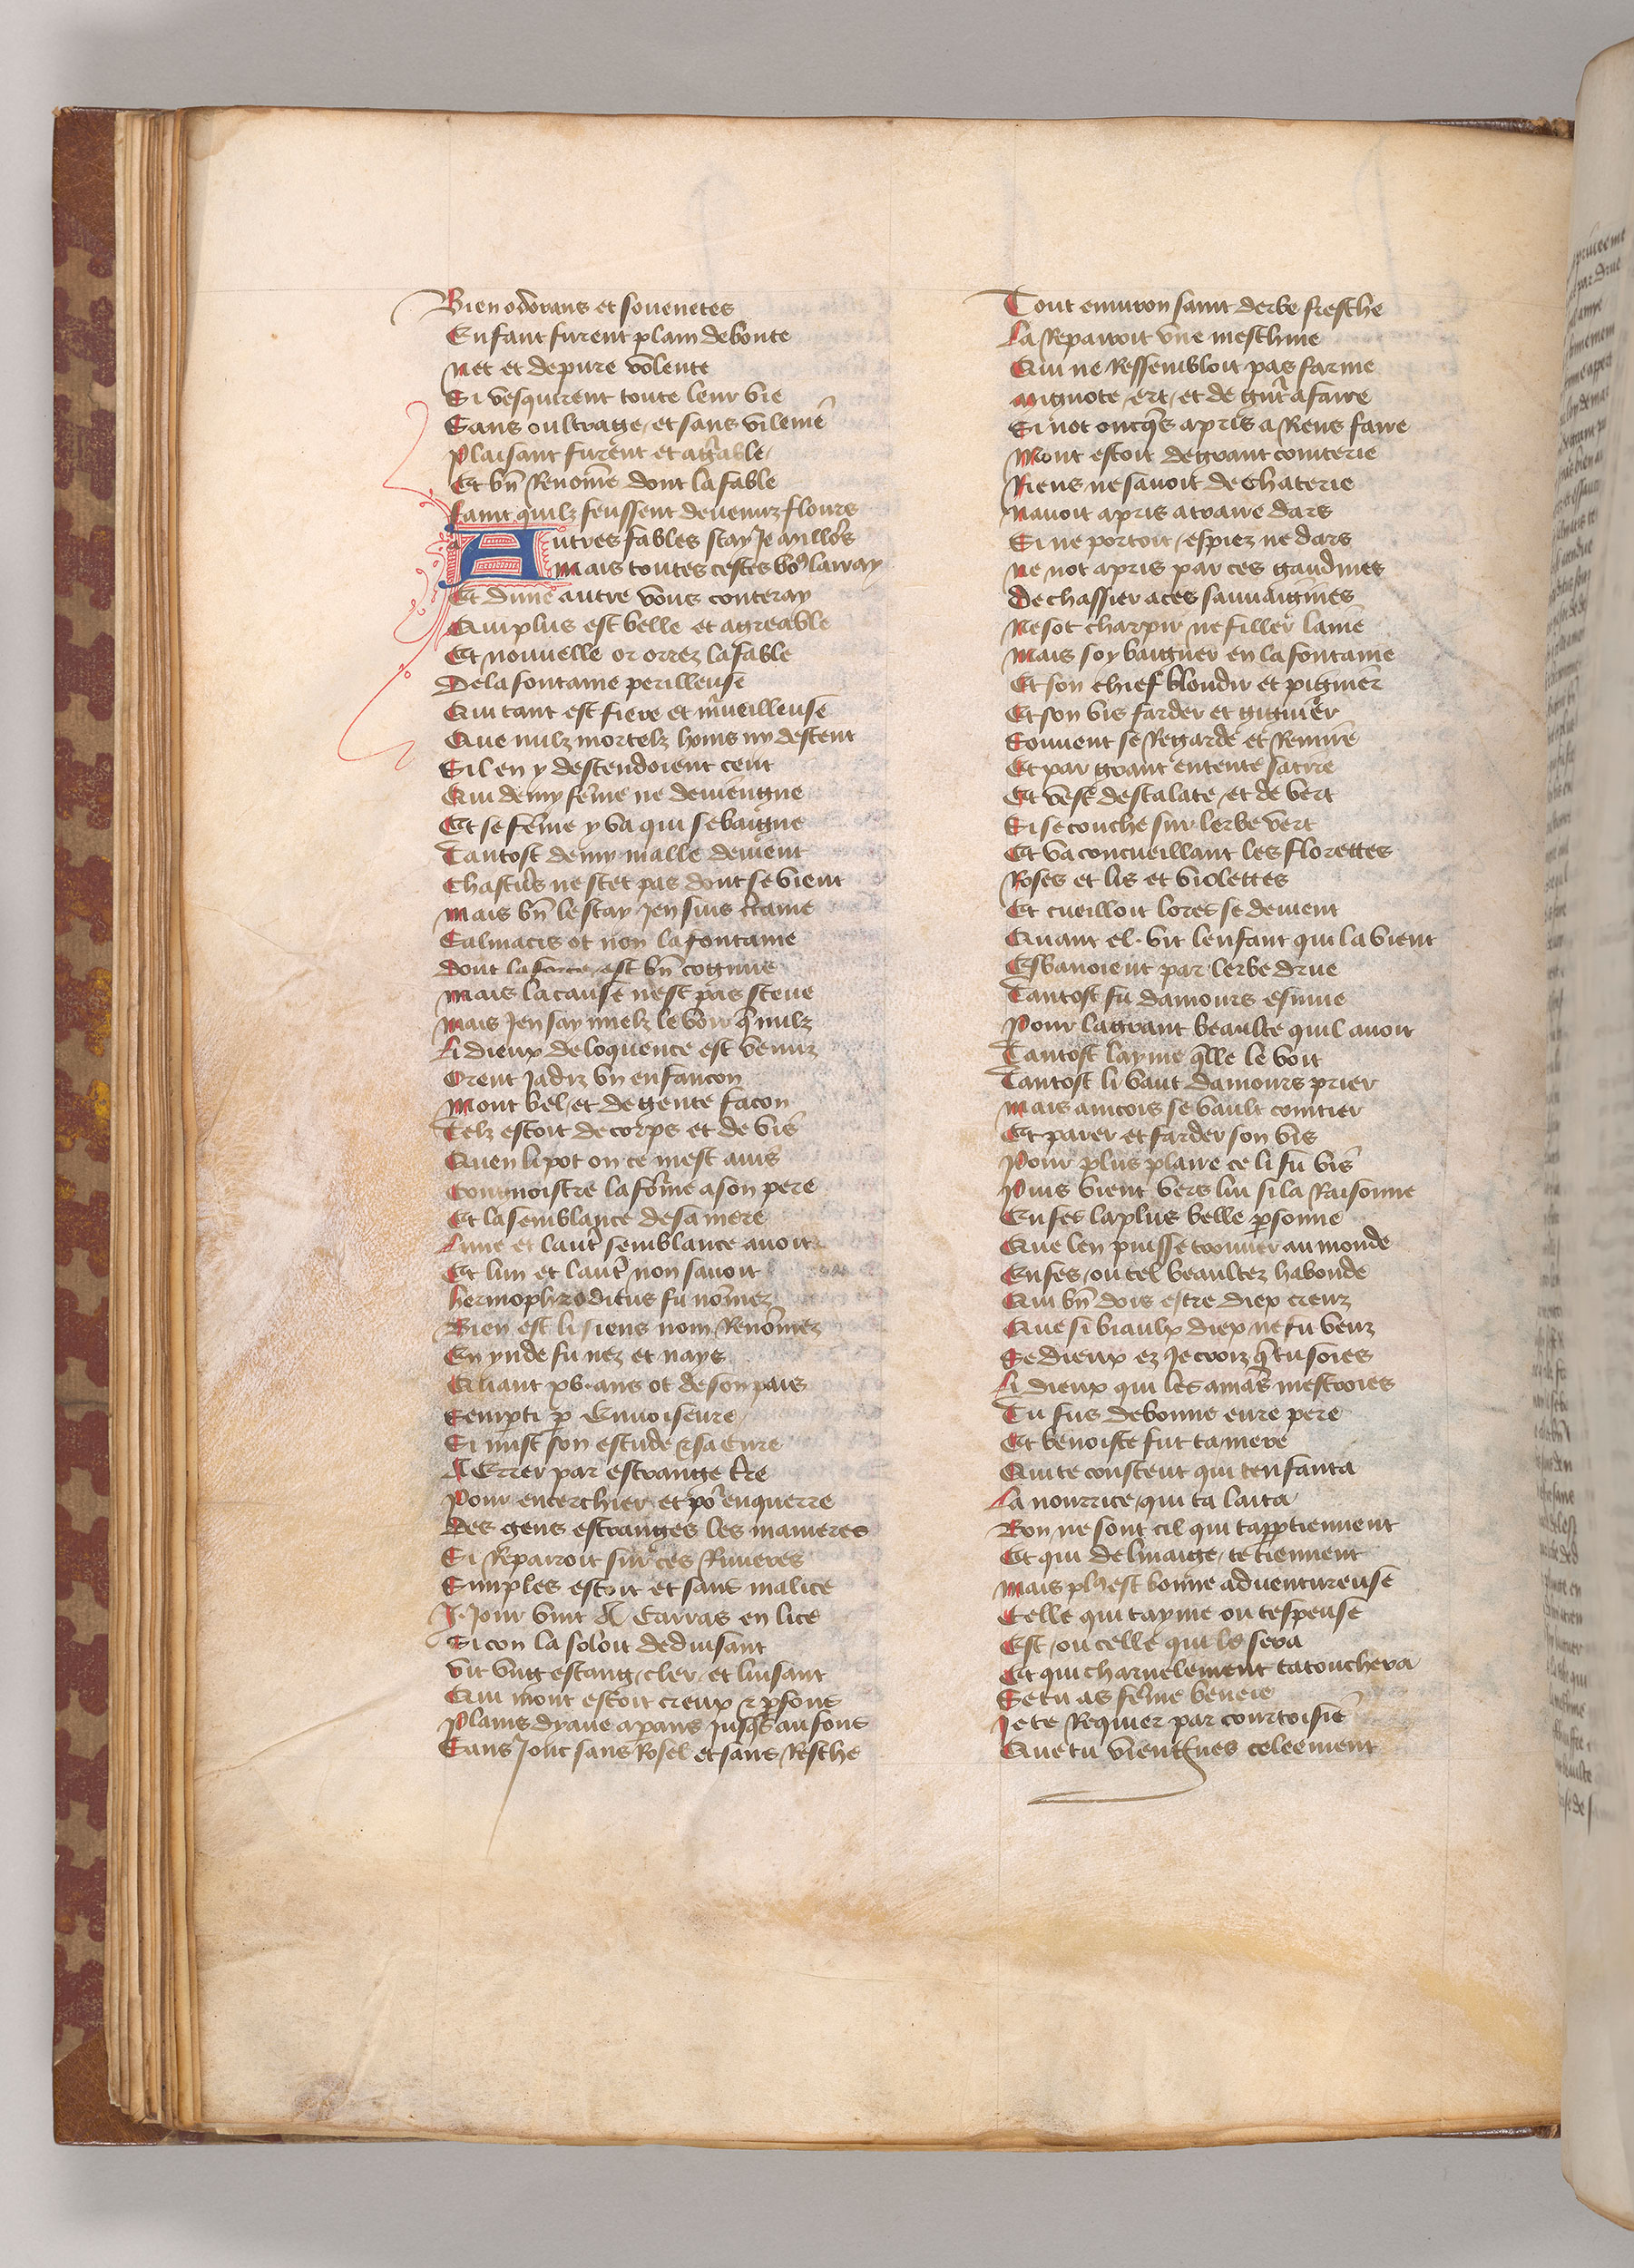 Bien odorans et souenetes
Enfant furent plain de bonte
Net et de pure volente
Si vesquirent toute leur vie
Sans oultrage et sans vilenie
Plaisant furent et aggable
Et bn Renome dont la fable
faint quilz feussent deuenuz flours
Autres fables scay Je aillors
Mais toutes cestes vo9 lairay
Et dune autre vous conteray
Qui plus est belle et agreable
Et nouuelle or orrez la fable
De la fontaine perilleuse
Qui tant est fiere et mueilleuse
Que nulz mortelz homs ny descent
Sil en y descendoient cent
Qui demy feme ne deuiengne
Et se feme y va qui se baigne
Tantost demy malle deuient
Chascus ne scet pas dont se vient
Mais bn le scay Jen suis ctaine
Salmacis ot non la fontaine
Dont la force est bn cogneue
Mais la cause nest pas sceue
Mais Jen say mielz le voir q nulz
Li dieux deloquence est venuz
Orent Jadiz vn enfancon
Mont bel et de gente facon
Telz estoit de corps et de vis
Quen li pot on ce mest auis
Congnoistre la forme a son pere
Et la semblance de sa mere
Lune et laut semblance auoit
Et lun et laut non sauoit
hermophroditus fu nomez
Bien est li siens nom Renomez
En ynde fu nez et nays
Quant xv. ans ot de son pais
Se mpti p Enuoiseure
Si mist son estude & sa Cure
A Errer par estrange tre
Pour encerchier et po enquerre
Des gens estranges les manieres
Si Repairoit sur ces Riuieres
Simples estoit et sans malice
I. Jour vint A Carras en lice
Si con la soloit deduisant
Vit vng estang cler et luisant
Qui mont estoit creux & pfons
Plains dyaue apans Jusqs au fons
Sans Jonc sans Rosel et sans Resche
Tout enuiron saint derbe fresche
La Repairoit vne meschine
Qui ne Ressembloit pas farine
Mignote ert et de gnt afaire
Si not oncqs apris a Rens faire
Mont estoit de grant cointerie
Riens ne sauoit de chaterie
Nauoit apris a traire dars
Si ne portoit espiez ne dars
Ne not apris par ces gaudines
De chassier a ces sauuaigines
Ne sot charpir ne filler laine
Mais soy baigner en la fontaine
Et son chief blondir et pignier
Et son vis farder et guignier
Souuent se Regarde et Remire
Et par grant entente satire
Et vest descalate et de vert
Si se couche sur lerbe vert
Et va concueillant les florettes
Roses et lis et violettes
Et cueilloit lores se deuient
Quant el. vit lenfant qui la vient
Esbanoient par lerbe drue
Tantost fu damours esmue
Pour la grant beaulte quil auoit
Tantost layme qlle le voit
Tantost li vaut damours prier
Mais aincois se vault cointier
Et parer et farder son vis
Pour plus plaire ce li fu vis
Puis vient vers lui si la Raisonne
Enfes la plus belle psonne
Que len puisse trouuer au monde
Enfes ou tel beaultez habonde
Qui bn dois estre diex creuz
Que si biaulx diex ne fu veuz
Se dieux ez Je croiz q tu soies
Li dieux qui les amās mescroies
Tu fus de bonne eure pere
Et benoiste fut ta mere
Qui te conceut qui tenfanta
La nourrice qui ta laita
Bon ne sont cil qui tapptiennent
Et qui de linaige te tiennent
Mais pl9 est bonne aduentureuse
Celle qui tayme ou tespeuse
Est ou celle qui le sera
Et qui charnelement tatouchera
Se tu as feme beneie
Je te Requier par courtoisie
Que tu viengnes celeement